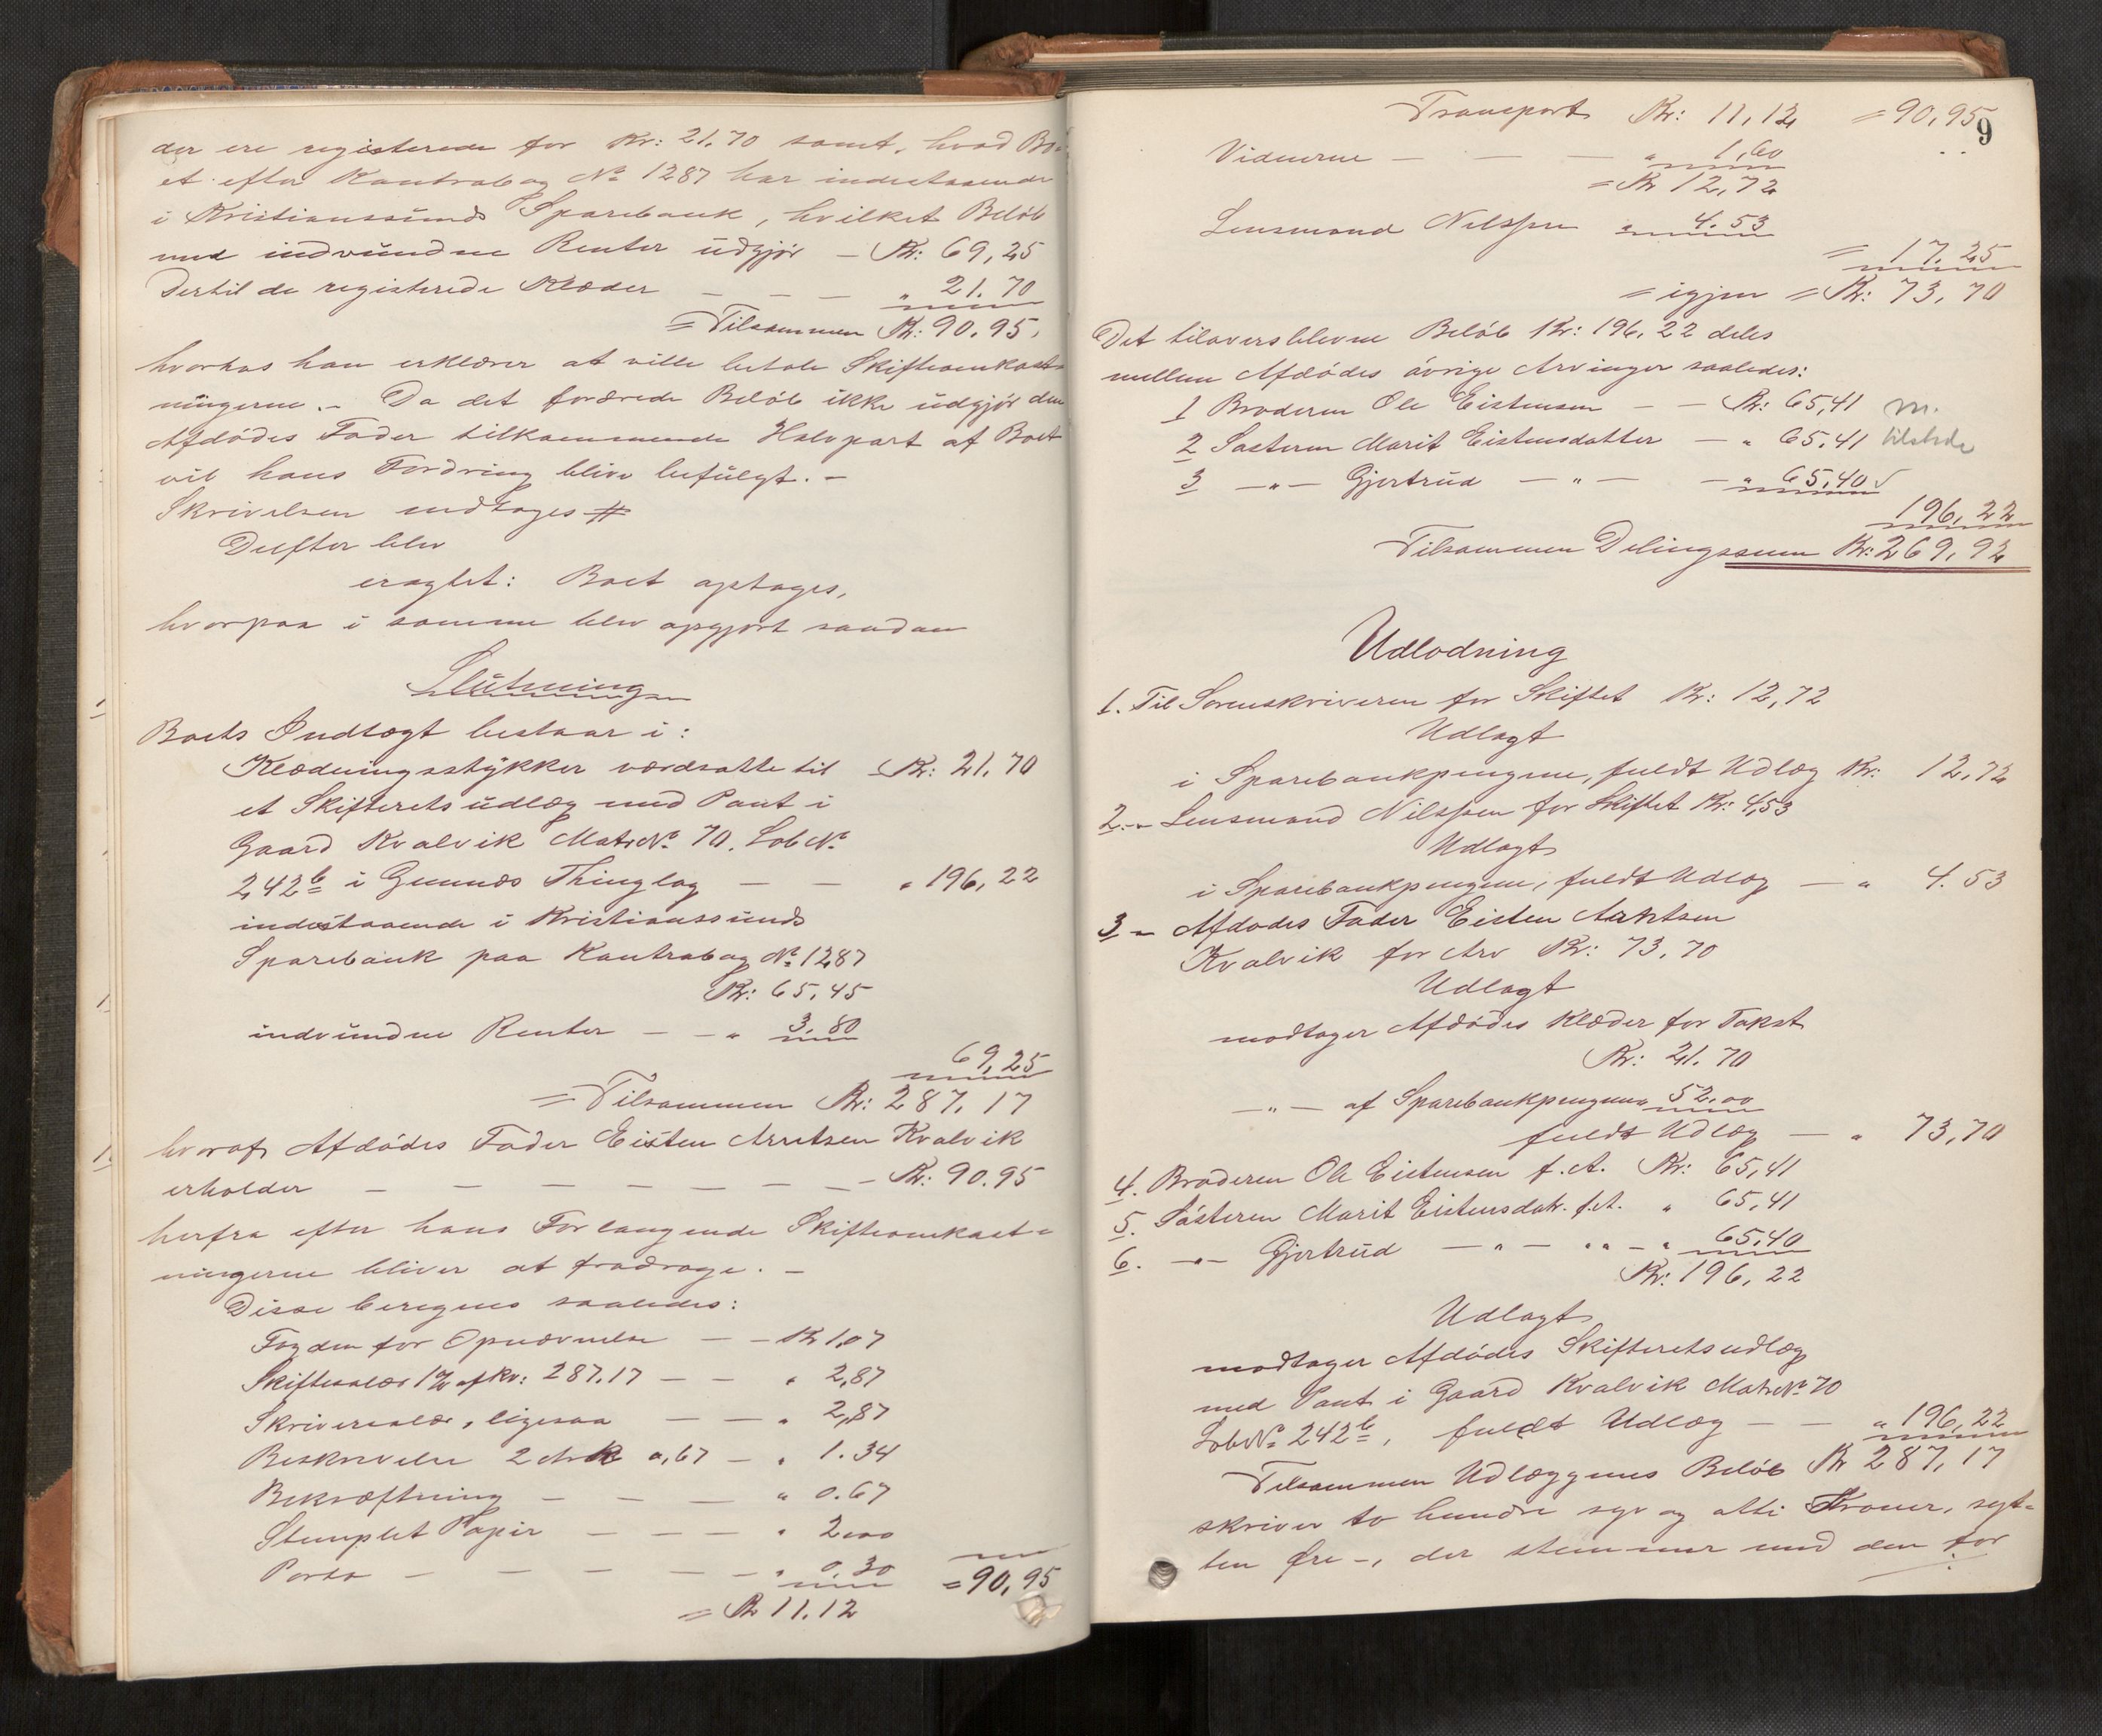 der ere registerede for Kr: 21.70 samt, hvad Bo-
et efter Kontrabog No 1287 har indestaaende
i Kristianssunds Sparebank, hvilket Beløb
med indvundne Renter udgjør – Kr: 69,25
Dertil de registerede Klæder – – – " 21.70
= Tilsammen Kr: 90.95,
hvorhos han erklærer at ville betale Skifteomkost-
ningerne. – Da det forærede Beløb ikke udgjør den
Afdødes Fader tilkommende Halvpart af Boet
vil hans Fordring blive befulgt. –
Skrivelsen modtages #
Derefter blev
eragtet: Boet optages,
hvorpaa i samme blev opgjort saadan
Slutning
Boets Indtægt bestaar i:
Klædningsstykker værdsatte til – Kr: 21.70
et Skifteretsudlæg med Pant i
Gaard Kvalvik Matr No 70. Løb No
242b i Gunnæs Thinglag – – " 196,22
indestaaende i Kristianssunds
Sparebank paa Kontrabog No 1287
Kr: 65,45
indvundne Renter – – " 3.80
69,25
= Tilsammen Kr: 287.17
hvoraf Afdødes Fader Eisten Arntsen Kvalvik
erholder – – – – – – – Kr: 90.95
herfra efter hans Forlangende Skifteomkost-
ningerne bliver at fradrage. –
Disse beregnes saaledes:
Fogden for Opnævnelse – – Kr 1,07
Skiftesalær 1% af Kr: 287.17 – – " 2,87
Skriversalær, ligesaa – – " 2,87
Beskrivelse 2 Ark a,67 – " 1.34
Bekræftning – – – " 0.67
Stemplet Papir – – – " 2,00
Porto – – – – – " 0.30 = 90,95
= Kr 11.12
9
Transport Kr: 11,12 = 90,95
Vidnerne – – – " 1,60
= Kr 12,72
Lensmand Nilssen " 4.53
= 17.25
= igjen = Kr: 73,70
Det tiloversblevne Beløb Kr: 196,22 deles
mellem Afdødes øvrige Arvinger saaledes:
1 Broderen Ole Eistensen – – Kr: 65,41 m.
2 Søsteren Marit Eistensdatter – " 65.41 tilstede
3 – " – Gjertrud – " – – " 65,40 √
196,22
Tilsammen Delingssum Kr: 269,92
Udlodning
1. Til Sorenskriveren for Skiftet Kr: 12,72
Udlagt
i Sparebankpengene, fuldt Udlæg Kr: 12,72
2. – " Lensmand Nilssen for Skiftet Kr: 4,53
Udlagt
i Sparebankpengene, fuldt Udlæg – " 4.53
3 – Afdødes Fader Eisten Arntsen
Kvalvik for Arv Kr: 73,70
Udlagt
modtager Afdødes Klæder for Takst
Kr: 21.70
– " – af Sparebankpengene 52,00
fuldt Udlæg – " 73,70
4. Broderen Ole Eistensen f. A. Kr: 65,41
5. Søsteren Marit Eistensdatr. f. A. " 65,41
6. – " – Gjertrud – " – " " – " 65,40
Kr: 196,22
Udlagt
modtager Afdødes Skifteretsudlæg
med Pant i Gaard Kvalvik Matr No 70
Løb No 242b, fuldt Udlæg – – " 196,22
Tilsammen Udlæggenes Beløb Kr 287,17
skriver to hundre syv og otti Kroner, syt-
ten Øre –, der stemmer med den for